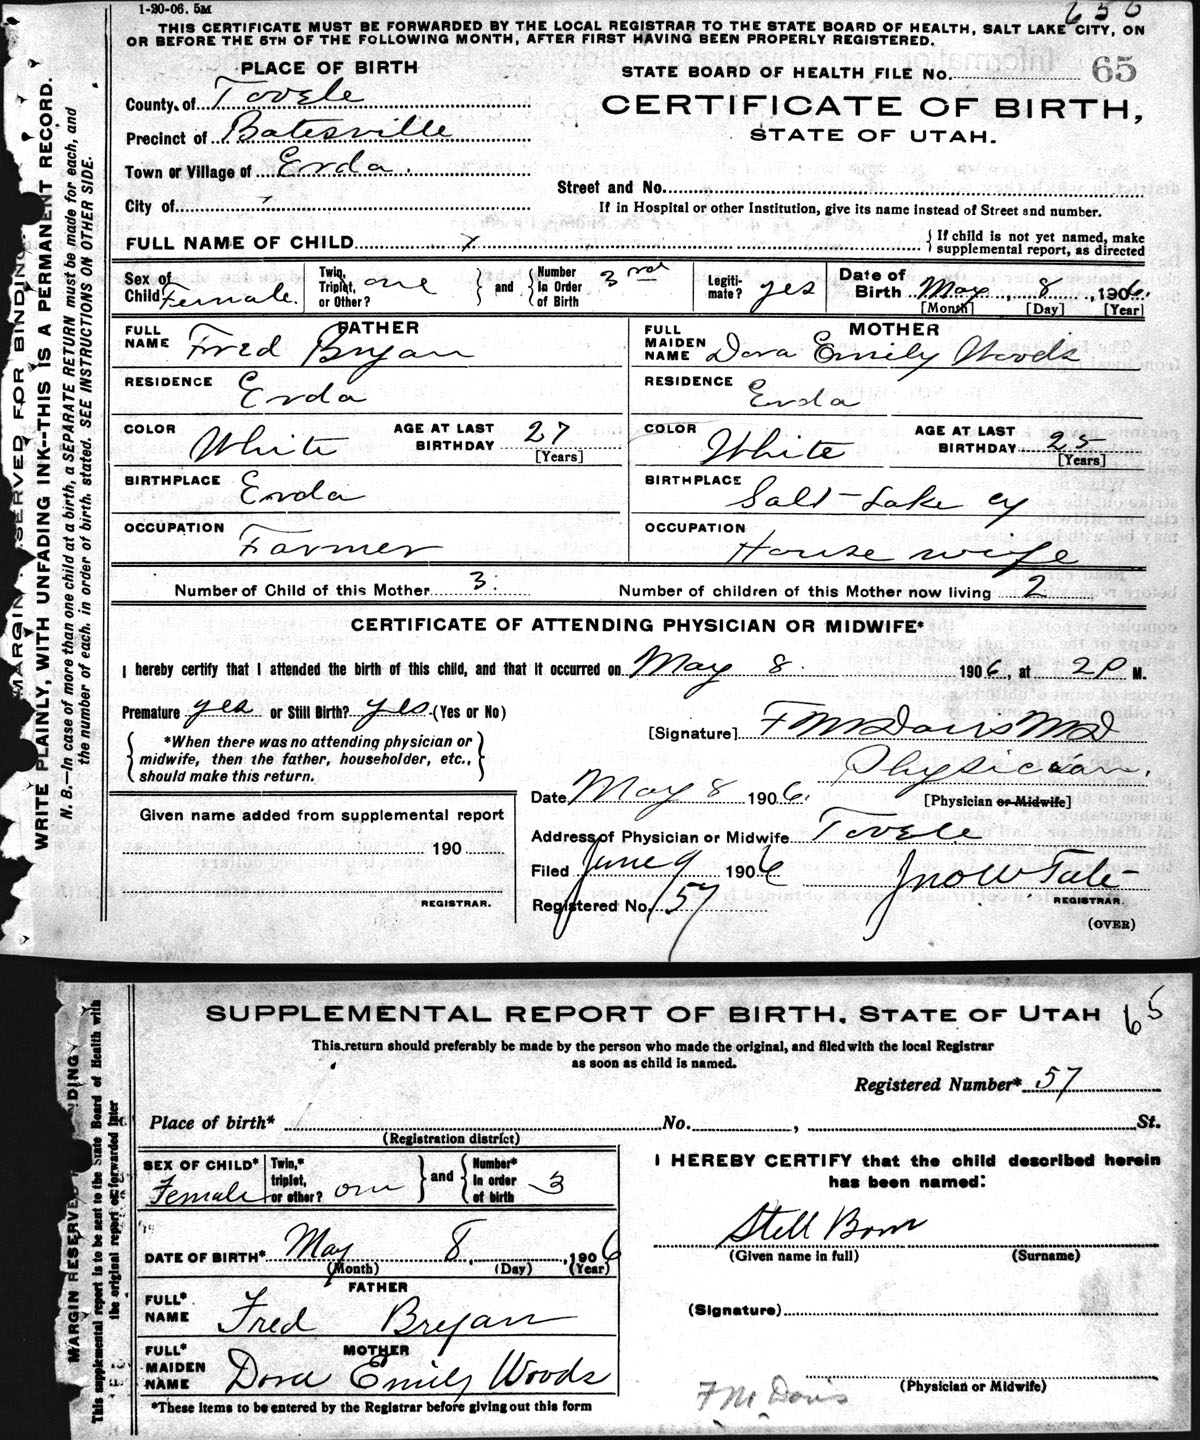 1-20-06. 5M
650
THIS CERTIFICATE MUST BE FORWARDED BY THE LOCAL REGISTRAR TO THE STATE BOARD OF HEALTH, SALT LAKE CITY, ON
OR BEFORE THE 5TH OF THE FOLLOWING MONTH, AFTER FIRST HAVING BEEN PROPERLY REGISTERED.
PLACE OF BIRTH
STATE BOARD OF HEALTH FILE No. 65
County, of Tooele
CERTIFICATE OF BIRTH,
Precinct of Batesville
STATE OF UTAH.
Town or Village of Erda.
Street and No.
City of
If in Hospital or other Institution, give its name instead of Street and number.
FULL NAME OF CHILD x { If child is not yet named, make supplemental report, as directed
Sex of Child Female. Twin, Triplet, or Other? one } and { Number In Order of Birth 3rd Legiti-mate? yes Date of Birth May, 8, 1906.
[Month] [Day] [Year]
FATHER
MOTHER
FULL NAME Fred Bryan
FULL MAIDEN NAME Dora Emily Woods
RESIDENCE Erda
RESIDENCE Erda
COLOR White AGE AT LAST BIRTHDAY 27 [Years]
COLOR White AGE AT LAST BIRTHDAY 25 [Years]
BIRTHPLACE Erda
BIRTHPLACE Salt-Lake cy
OCCUPATION Farmer
OCCUPATION House wife
Number of Child of this Mother 3. Number of children of this Mother now living 2
CERTIFICATE OF ATTENDING PHYSICIAN OR MIDWIFE*
I hereby certify that I attended the birth of this child, and that it occurred on May 8. 1906, at 2P M.
Premature yes or Still Birth? yes (Yes or No)
[Signature] F M Davis MD
{ *When there was no attending physician or
midwife, then the father, householder, etc.,
should make this return. }
Physician.
Date May 8 1906. [Physician or Midwife]
Given name added from supplemental report
Address of Physician or Midwife Tooele
190
Filed June 9 1906 Jno W Tate
REGISTRAR.
REGISTRAR.
Registered No. 157
(OVER)
MARGIN RESERVED FOR BINDING
WRITE PLAINLY, WITH UNFADING INK--THIS IS A PERMANENT RECORD.
N. B.—In case of more than one child at a birth, a SEPARATE RETURN must be made for each, and
the number of each, in order of birth, stated. SEE INSTRUCTIONS ON OTHER SIDE.
SUPPLEMENTAL REPORT OF BIRTH, STATE OF UTAH 65
This return should preferably be made by the person who made the original, and filed with the local Registrar
as soon as child is named.
Registered Number* 57
Place of birth* No. , St.
(Registration district)
SEX OF CHILD* Female Twin,* triplet, or other? one } and { Number* In order of birth 3
I HEREBY CERTIFY that the child described herein
has been named:
Still Born
DATE OF BIRTH* May 8, 1906
(Month) (Day) (Year)
(Given name in full) (Surname)
FATHER
FULL* NAME Fred Bryan
(Signature)
MOTHER
FULL* MAIDEN NAME Dora Emily Woods
(Physician or Midwife)
F M Davis
*These items to be entered by the Registrar before giving out this form
MARGIN RESERVED BINDING
This supplemental report is to be sent to the State Board of Health with
the original report or forwarded later